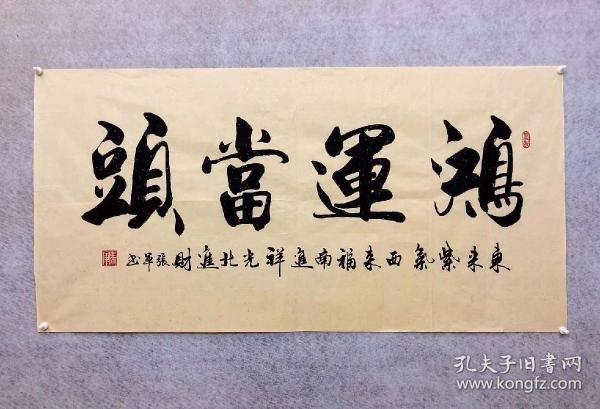 鴻運當頭
東来紫氣西来福南進祥光北進財張軍书
孔夫子旧书网
www.kongfz.com